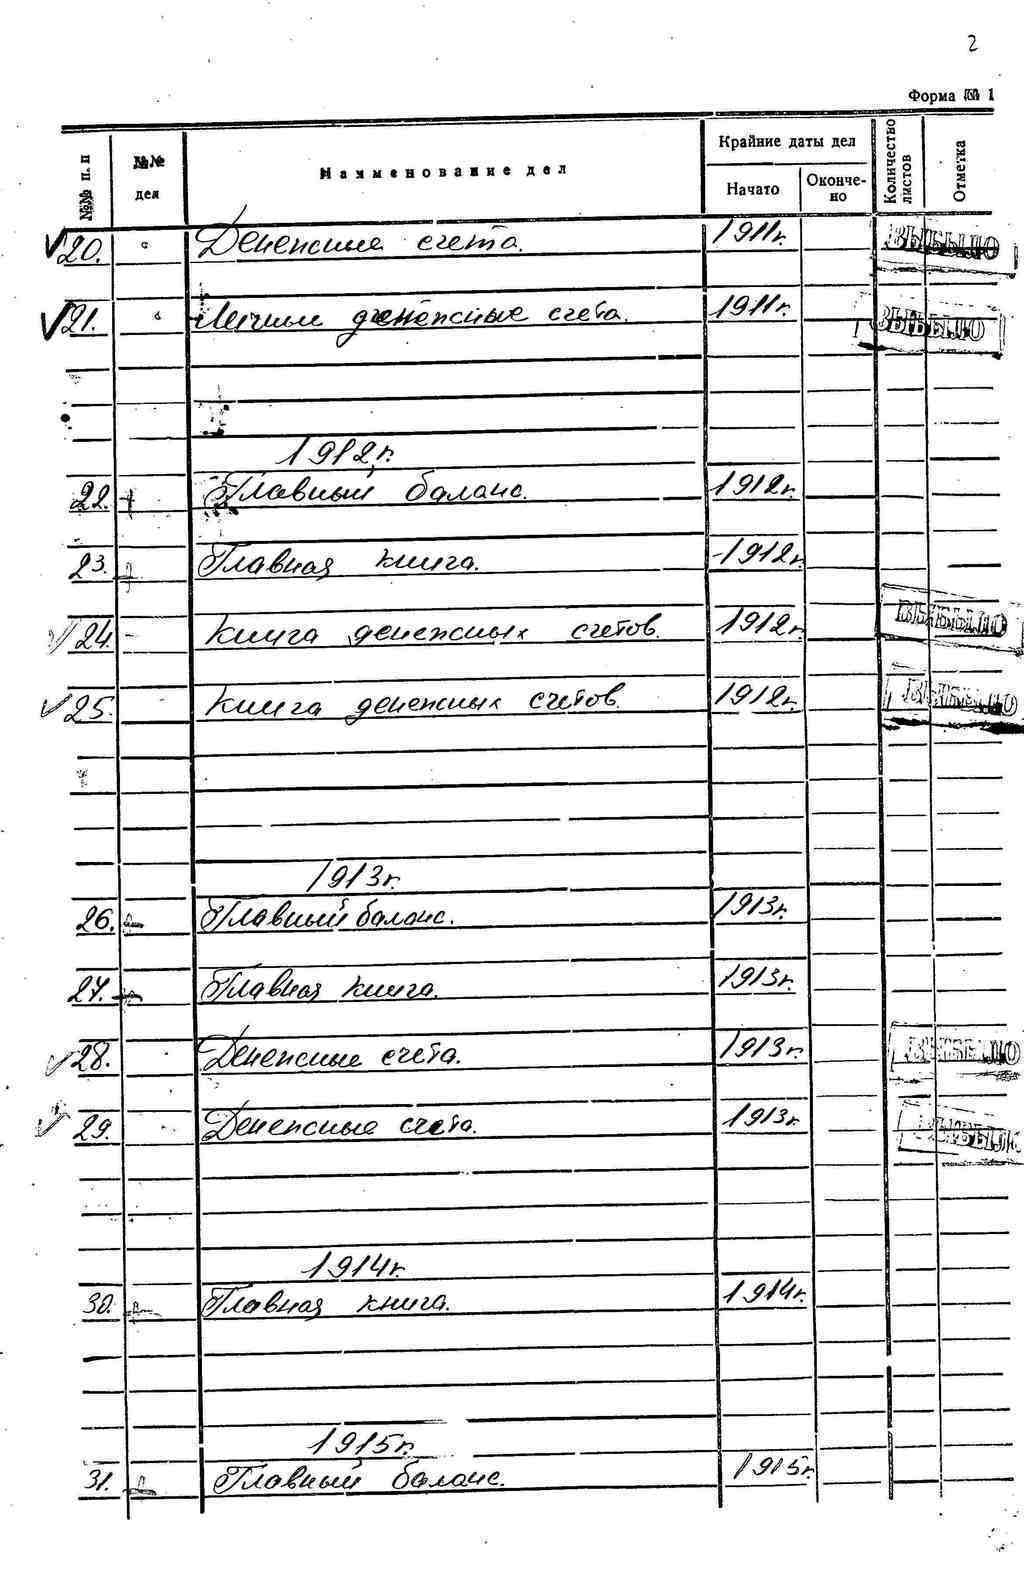 2
Форма № 1
№№ п. п
№№ дел
Наименование дел
Крайние даты дел
Начато
Окончено
Количество листов
Отметка
20. Денежные счета. 1911г. ВЫБЫЛО
21. Личные денежные счета. 1911г. ВЫБЫЛО
1912г.
22. Главный баланс. 1912г.
23. Главная книга. 1912г.
24. Книга денежных счетов. 1912г. ВЫБЫЛО
25. Книга денежных счетов. 1912г. ВЫБЫЛО
1913г.
26. Главный баланс. 1913г.
27. Главная книга. 1913г.
28. Денежные счета. 1913г. ВЫБЫЛО
29. Денежные счета. 1913г. ВЫБЫЛО
1914г.
30. Главная книга. 1914г.
1915г.
31. Главный баланс. 1915г.